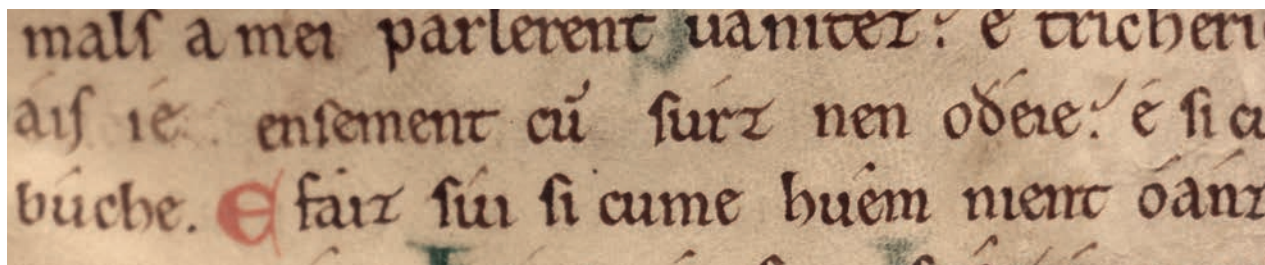 malſ a mei parlerent uanitez: e tricheri
áiſ ié enſement cū ſurz nen oðeíe: é ſi cu
búche. E faiz ſúi ſi cume huém nient óánz